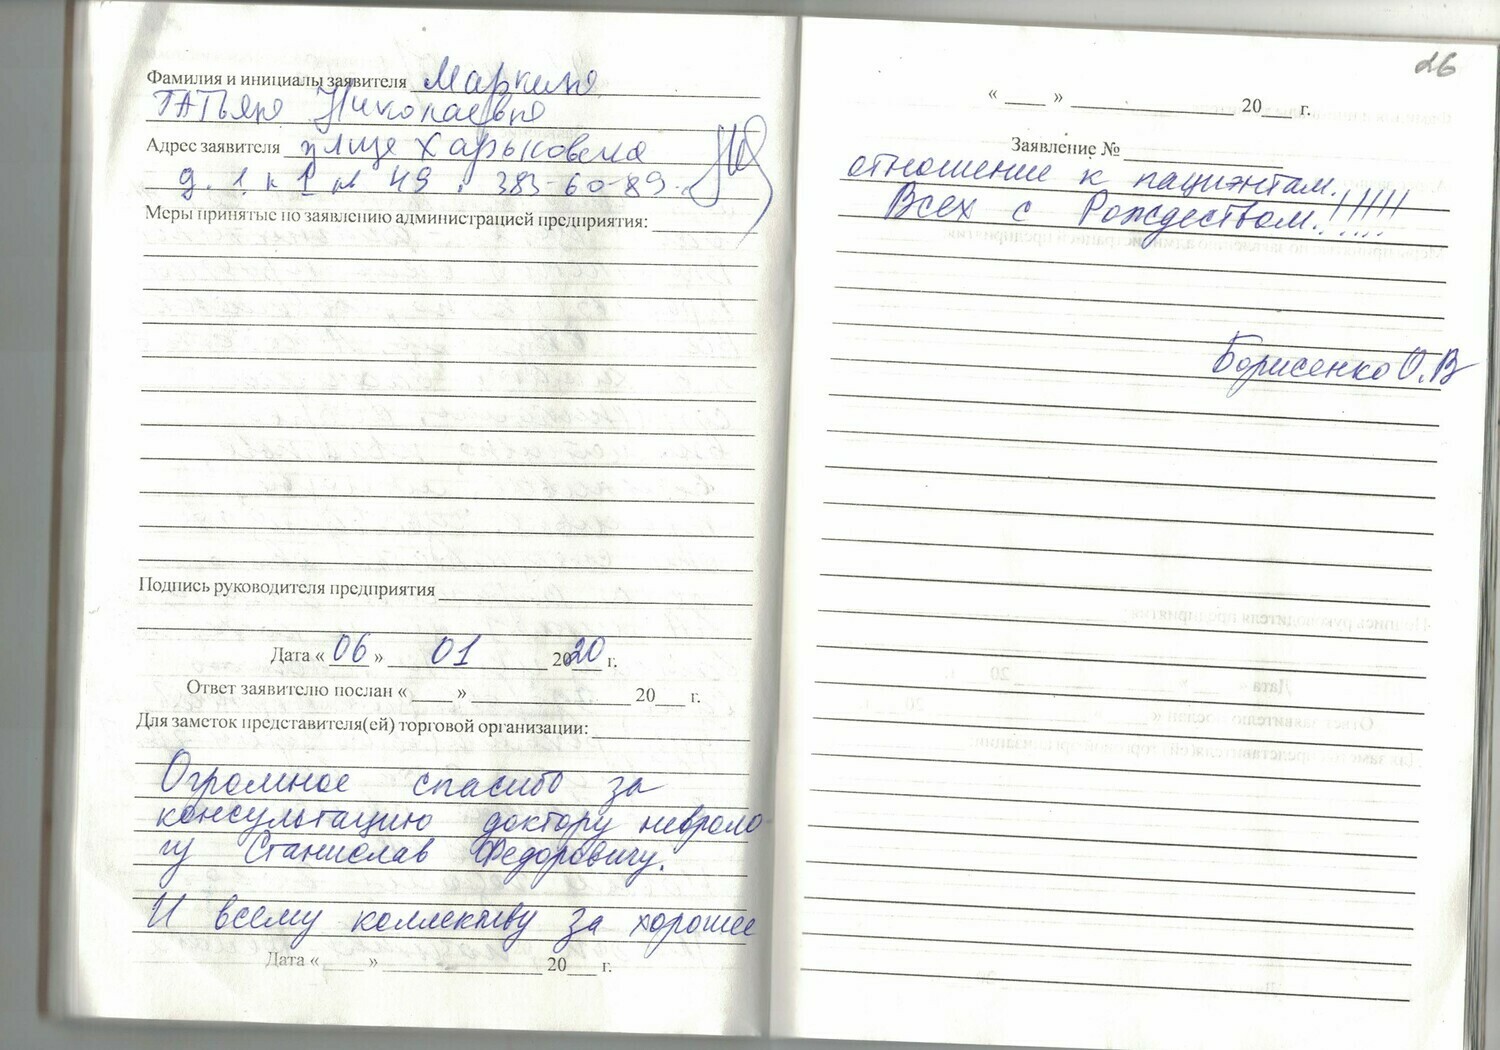 Фамилия и инициалы заявителя Маркина
Татьяна Николаевна
Адрес заявителя улице Харьковская
д. 1 к 1 кв 49. 383-60-89.
Меры принятые по заявлению администрацией предприятия:
Подпись руководителя предприятия
Дата « 06 » 01 2020 г.
Ответ заявителю послан « » 20 г.
Для заметок представителя(ей) торговой организации:
Огромное спасибо за
консультацию доктору невроло-
гу Станислав Федоровичу.
И всему коллективу за хорошее
Дата « » 20 г.
26
« » 20 г.
Заявление №
отношение к пациэнтам.!!!!!
Всех с Рождеством.!.....
Борисенко О.В